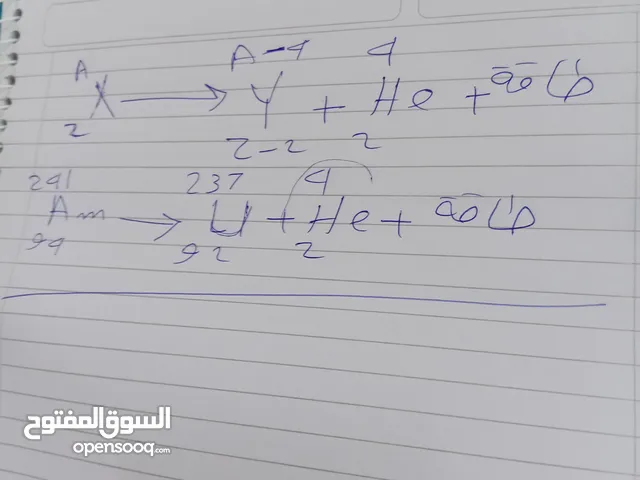 A A-4 4
X → Y + He + طاقة
2 2-2 2
241 237 4
Am → U + He + طاقة
94 92 2
السوق المفتوح
opensooq.com